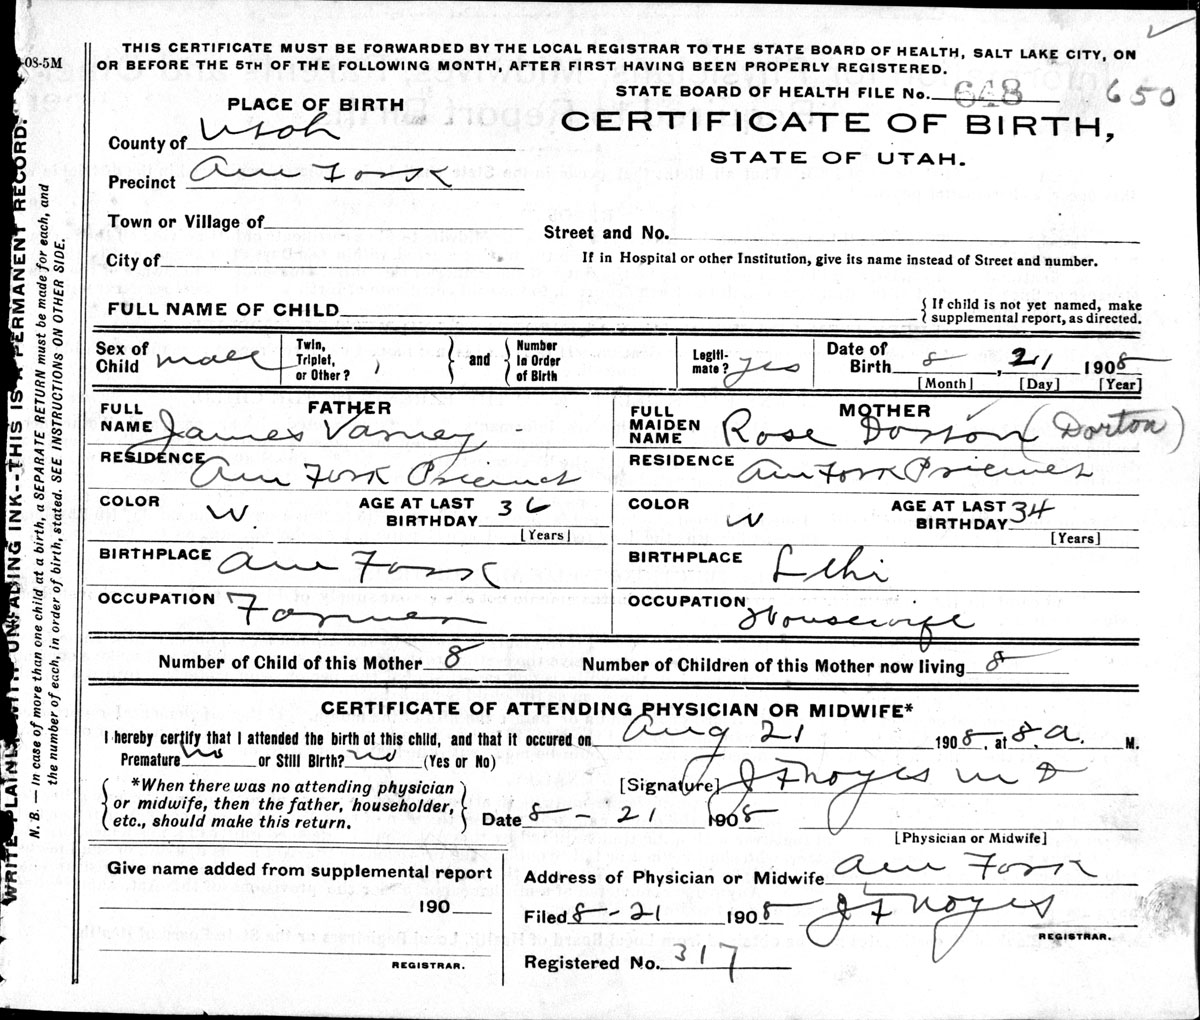 -08-5M
THIS CERTIFICATE MUST BE FORWARDED BY THE LOCAL REGISTRAR TO THE STATE BOARD OF HEALTH, SALT LAKE CITY, ON
OR BEFORE THE 5TH OF THE FOLLOWING MONTH, AFTER FIRST HAVING BEEN PROPERLY REGISTERED.
STATE BOARD OF HEALTH FILE No. 648 650
PLACE OF BIRTH
CERTIFICATE OF BIRTH,
STATE OF UTAH.
County of Utah
Precinct Am Fork
Town or Village of
Street and No.
City of
If in Hospital or other Institution, give its name instead of Street and number.
FULL NAME OF CHILD
{ If child is not yet named, make
supplemental report, as directed.
Sex of Child male
Twin, Triplet, or Other?
and
Number in Order of Birth
Legiti-mate? yes
Date of Birth 8, 21 1908
[Month] [Day] [Year]
FATHER
FULL NAME James Varney
RESIDENCE Am Fork Precinct
COLOR W. AGE AT LAST BIRTHDAY 36
[Years]
BIRTHPLACE Am Fork
OCCUPATION Farmer
MOTHER
FULL MAIDEN NAME Rose Dorton (Dorton)
RESIDENCE Am Fork Precinct
COLOR W AGE AT LAST BIRTHDAY 34
[Years]
BIRTHPLACE Lehi
OCCUPATION Housewife
Number of Child of this Mother 8 Number of Children of this Mother now living 8
CERTIFICATE OF ATTENDING PHYSICIAN OR MIDWIFE*
I hereby certify that I attended the birth of this child, and that it occured on Aug 21 1908, at 8.a. M.
Premature no or Still Birth? no (Yes or No)
*When there was no attending physician
or midwife, then the father, householder,
etc., should make this return.
[Signature] J F Noyes M D
Date 8 - 21 1908
[Physician or Midwife]
Give name added from supplemental report
190
REGISTRAR.
Address of Physician or Midwife Am Fork
Filed 8-21 1908 J F Noyes
REGISTRAR.
Registered No. 317
WRITE PLAINLY WITH UNFADING INK--THIS IS A PERMANENT RECORD.
N. B. — In case of more than one child at a birth, a SEPARATE RETURN must be made for each, and
the number of each, in order of birth, stated. SEE INSTRUCTIONS ON OTHER SIDE.